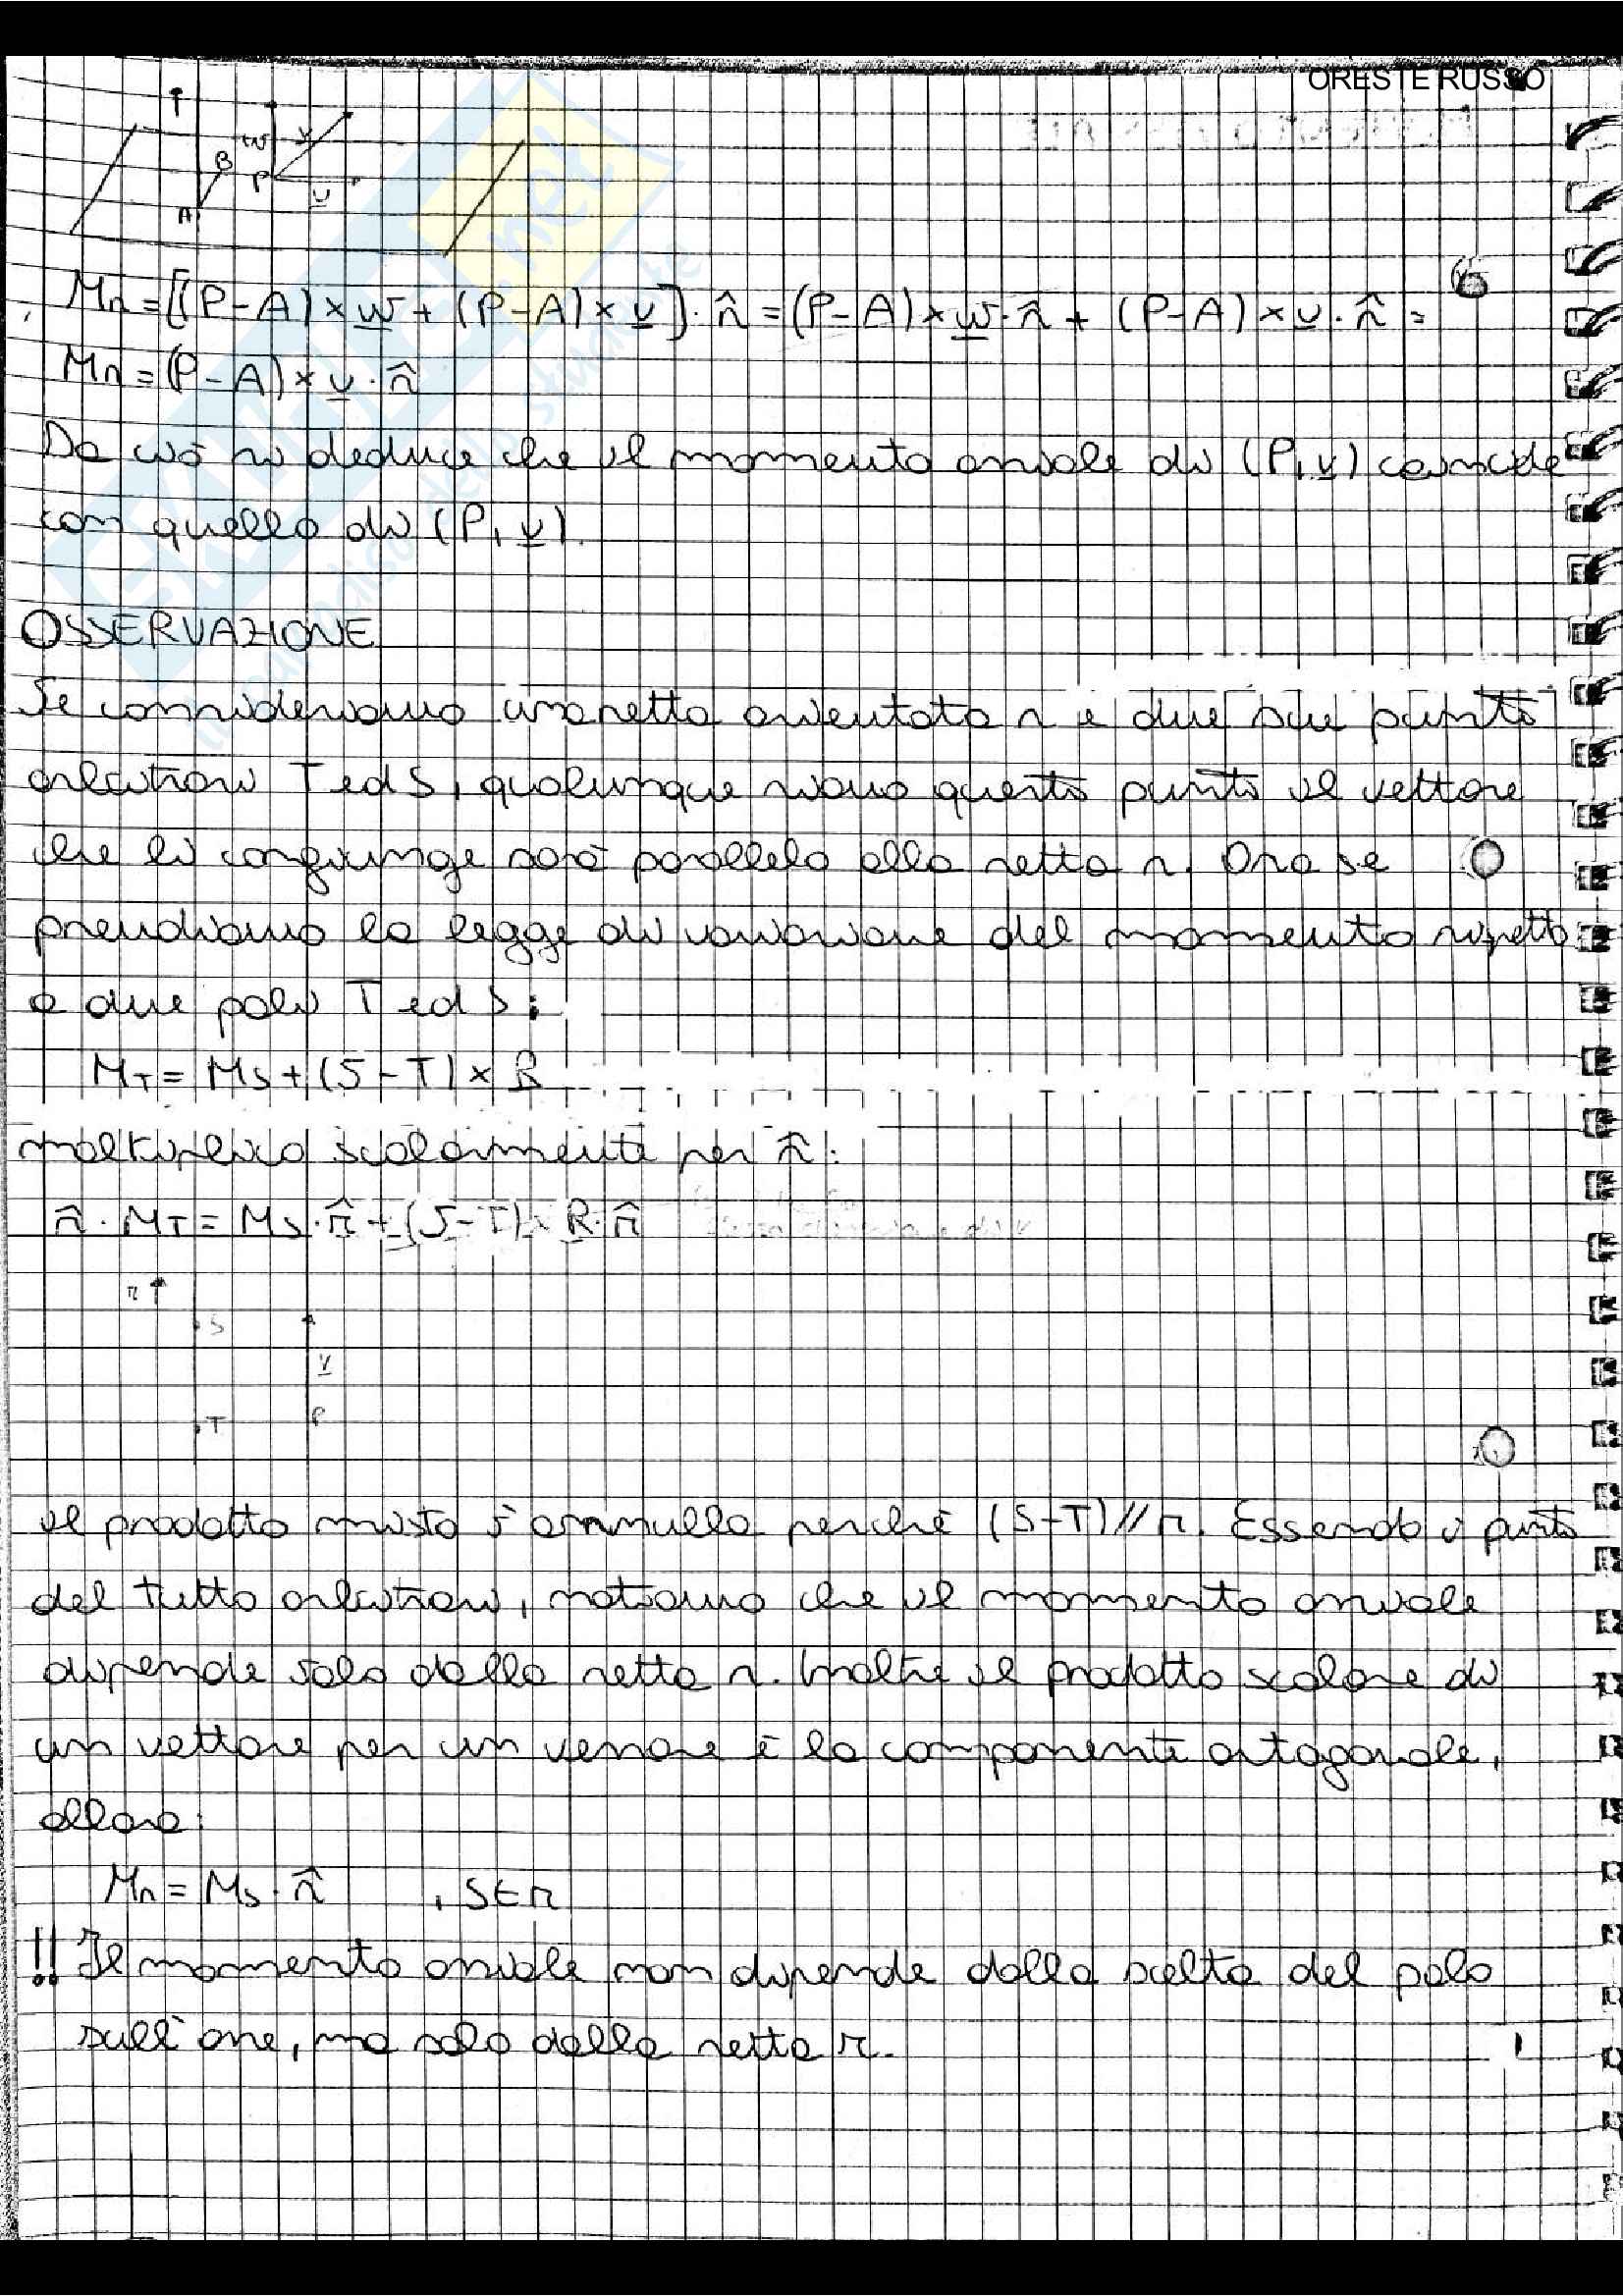 ORESTE RUSSO
w v
B
P
A
u
6
Mr = [(P-A) × w + (P-A) × u] · r̂ = (P-A) × w · r̂ + (P-A) × u · r̂ =
Mr = (P-A) × u · r̂
Da ciò si deduce che il momento assiale di (P, v) coincide
con quello di (P, u).
OSSERVAZIONE
Se consideriamo una retta orientata r e due sui punti
arbitrari T ed S, qualunque siano questi punti il vettore
che li congiunge sarà parallelo alla retta r. Ora se
prendiamo la legge di variazione del momento rispetto
a due poli T ed S:
MT = MS + (S-T) × R
moltiplico scalarmente per r̂:
r̂ · MT = MS · r̂ + (S-T) × R · r̂
r
S
v
T P
il prodotto misto s'annulla perchè (S-T) // r. Essendo i punti
del tutto arbitrari, notiamo che il momento assiale
dipende solo dalla retta r. Inoltre il prodotto scalare di
un vettore per un versore è la componente ortogonale,
allora:
Mr = MS · r̂ , S∈r
!! Il momento assiale non dipende dalla scelta del polo
sull'asse, ma solo dalla retta r.